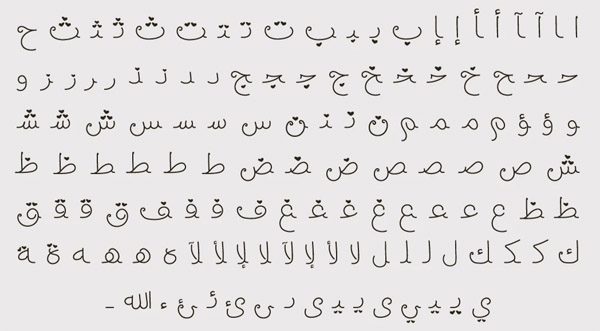 ا ا آ آ أ أ إ إ ب ب ب ب ت ت ت ت ث ث ث ث ح
ح ح ح خ خ خ خ ج ج ج ج د د ذ ذ ر ر ز ز و
و ؤ ؤ م م م م ن ن ن ن س س س س ش ش ش
ش ص ص ص ص ض ض ض ض ط ط ط ط ظ ظ
ظ ظ ع ع ع ع غ غ غ غ ف ف ف ف ق ق ق ق
ك ك ك ك ل ل ل ل لا لا لإ لإ لآ لآ ه ه ه ه ة ة
ي ي ي ي ى ى ئ ئ ئ ء الله ـ